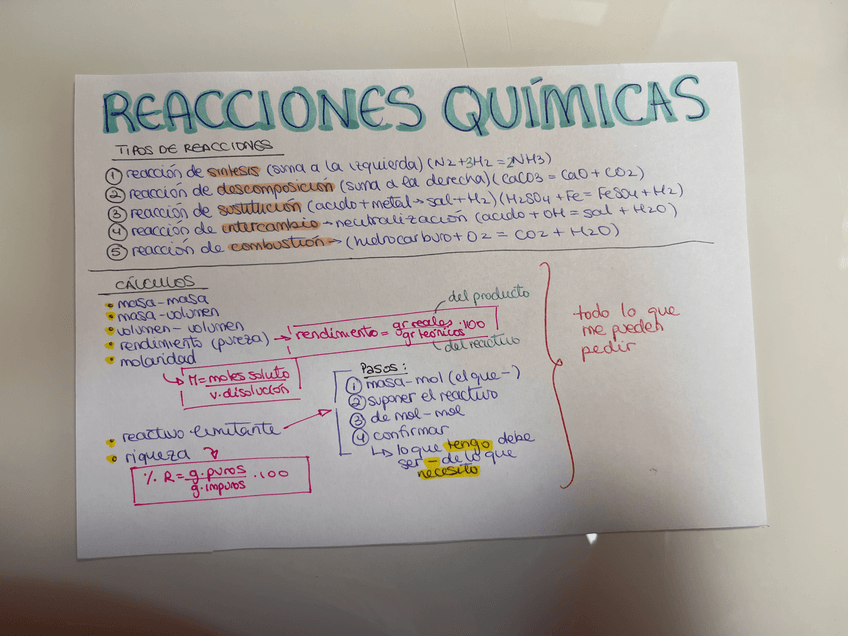 REACCIONES QUÍMICAS
TIPOS DE REACCIONES
① reacción de sintesis (suma a la izquierda) (N2+3H2=2NH3)
② reacción de descomposición (suma a la derecha) (CaCO3 = CaO + CO2)
③ reacción de sustitución (acido+metal→sal+H2) (H2SO4+Fe=FeSO4+H2)
④ reacción de intercambio→neutralización (acido+OH=sal+H2O)
⑤ reacción de combustión→(hidrocarburo+O2 = CO2+H2O)
CÁLCULOS
• masa-masa
• masa-volumen
• volumen-volumen
• rendimiento (pureza) → rendimiento = gr reales / gr teóricos · 100
del producto
del reactivo
• molaridad
↳ M = moles soluto / v. disolución
• reactivo limitante
Pasos:
① masa-mol (el que -)
② suponer el reactivo
③ de mol-mol
④ confirmar
↳ lo que tengo debe
ser - de lo que
necesito
• riqueza
% R = g. puros / g. impuros · 100
todo lo que
me pueden
pedir